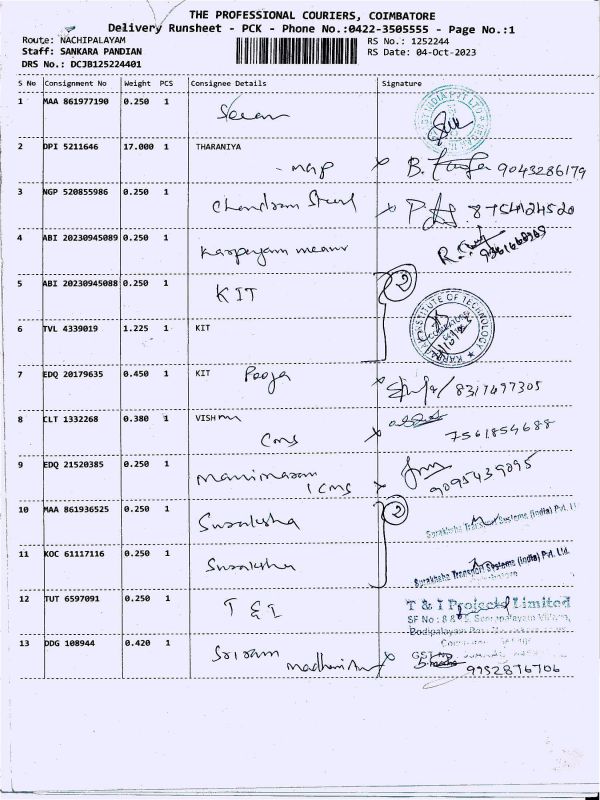 THE PROFESSIONAL COURIERS, COIMBATORE
Delivery Runsheet - PCK - Phone No.:0422-3505555 - Page No.:1
Route: NACHIPALAYAM RS No.: 1252244
Staff: SANKARA PANDIAN RS Date: 04-Oct-2023
DRS No.: DCJB125224401
S No Consignment No Weight PCS Consignee Details Signature
1 MAA 861977190 0.250 1
2 DPI 5211646 17.000 1 THARANIYA
- map x B. 9043286179
3 NGP 520855986 0.250 1
x 8754124520
4 ABI 20230945089 0.250 1
5 ABI 20230945088 0.250 1 KIT 2
6 TVL 4339019 1.225 1 KIT INSTITUTE OF TECHNOLOGY
7 EDQ 20179635 0.450 1 KIT Pooja x 8317497305
8 CLT 1332268 0.380 1 VISHnu
Cms x 7561854688
9 EDQ 21520385 0.250 1 manimaran
1 cms x 9095439095
10 MAA 861936525 0.250 1 Suraksha 2
Surakshaa Transport Systems (India) Pvt. Ltd.
11 KOC 61117116 0.250 1 Suraksha
Surakshaa Transport Systems (India) Pvt. Ltd.
12 TUT 6597091 0.250 1 T & I T & I Projects Limited
SF No : 88
13 DDG 108944 0.420 1 Sriram x
9952876706